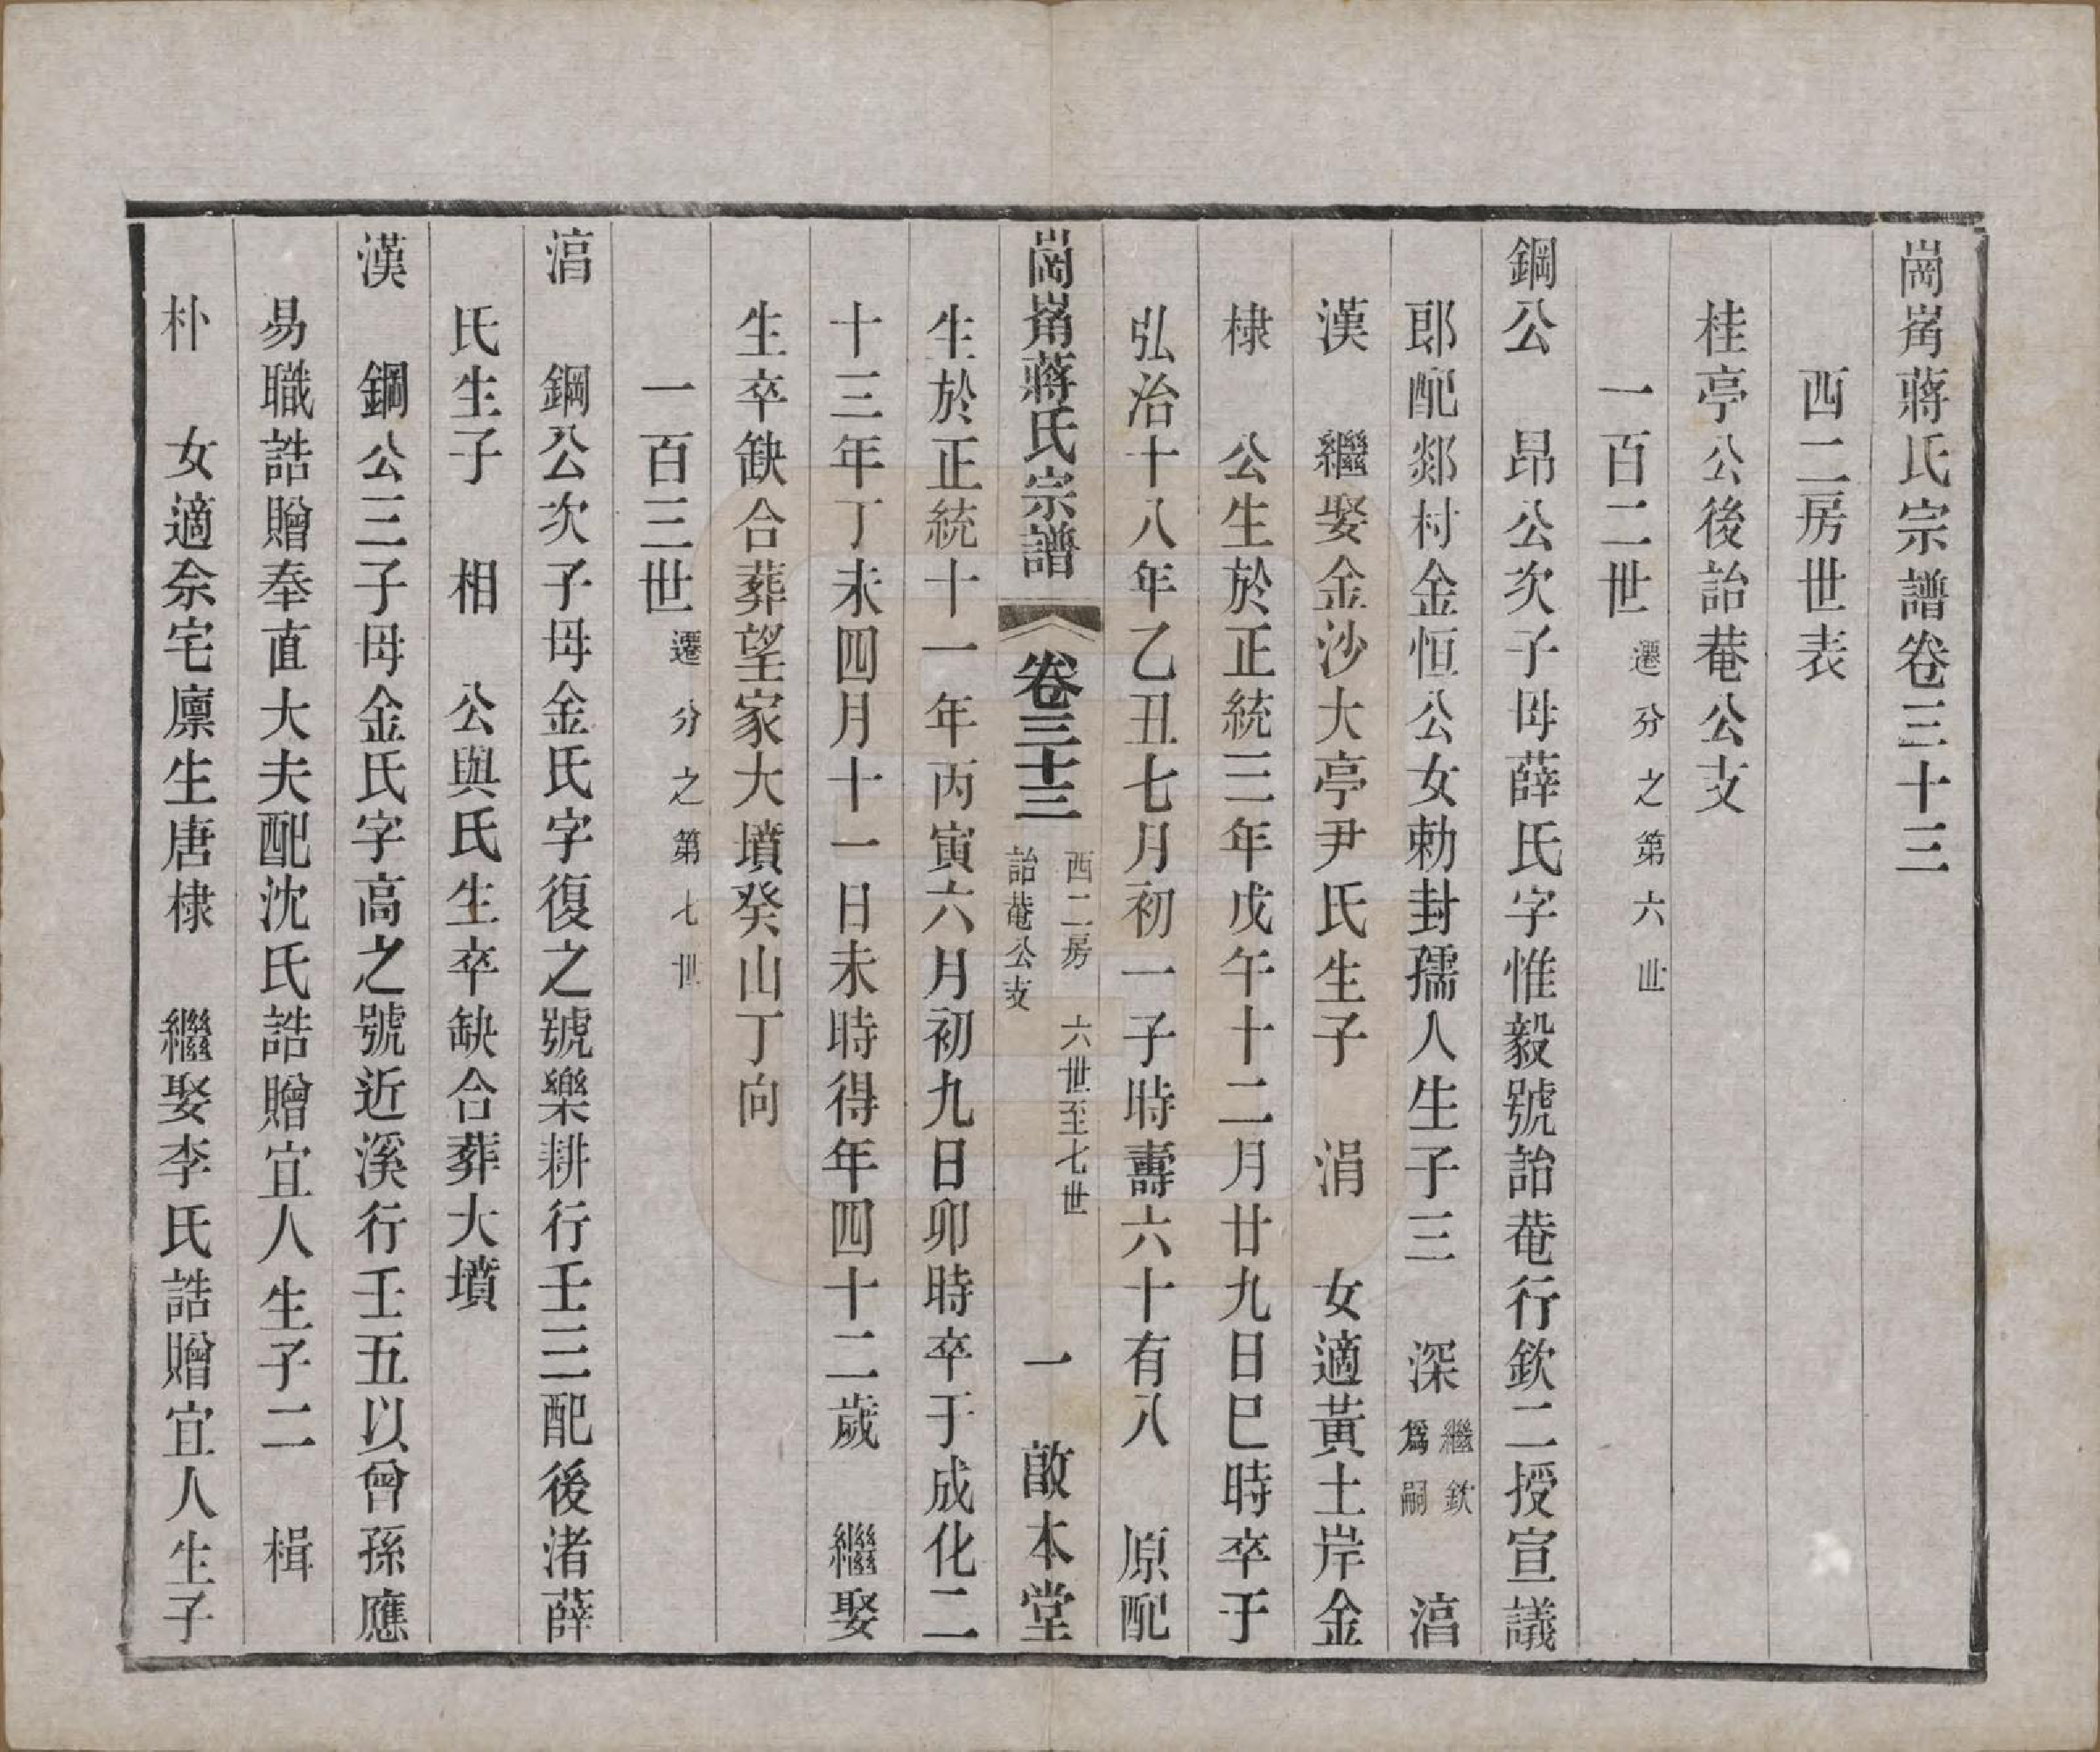 崗㟁蔣氏宗譜卷三十三
西二房世表
桂亭公後詒菴公支
一百二世遷分之第六世
鋼公　昂公次子母薛氏字惟毅號詒菴行欽二授宣議
郎配郯村金恒公女勅封孺人生子三　深繼欽爲嗣　湻
漢　繼娶金沙大亭尹氏生子　涓　女適黃土岸金
棣　公生於正統三年戊午十二月廿九日巳時卒于
弘治十八年乙丑七月初一子時壽六十有八　原配
崗㟁蔣氏宗譜　卷三十三　西二房詒菴公支　六世至七世　一　啟本堂
生於正統十一年丙寅六月初九日卯時卒于成化二
十三年丁未四月十一日未時得年四十二歲　繼娶
生卒缺合葬望家大墳癸山丁向
一百三世遷分之第七世
湻　鋼公次子母金氏字復之號樂耕行壬三配後渚薛
氏生子　相　公與氏生卒缺合葬大墳
漢　鋼公三子母金氏字高之號近溪行壬五以曾孫應
易職誥贈奉直大夫配沈氏誥贈宜人生子二　楫
朴　女適佘宅廩生唐棣　繼娶李氏誥贈宜人生子